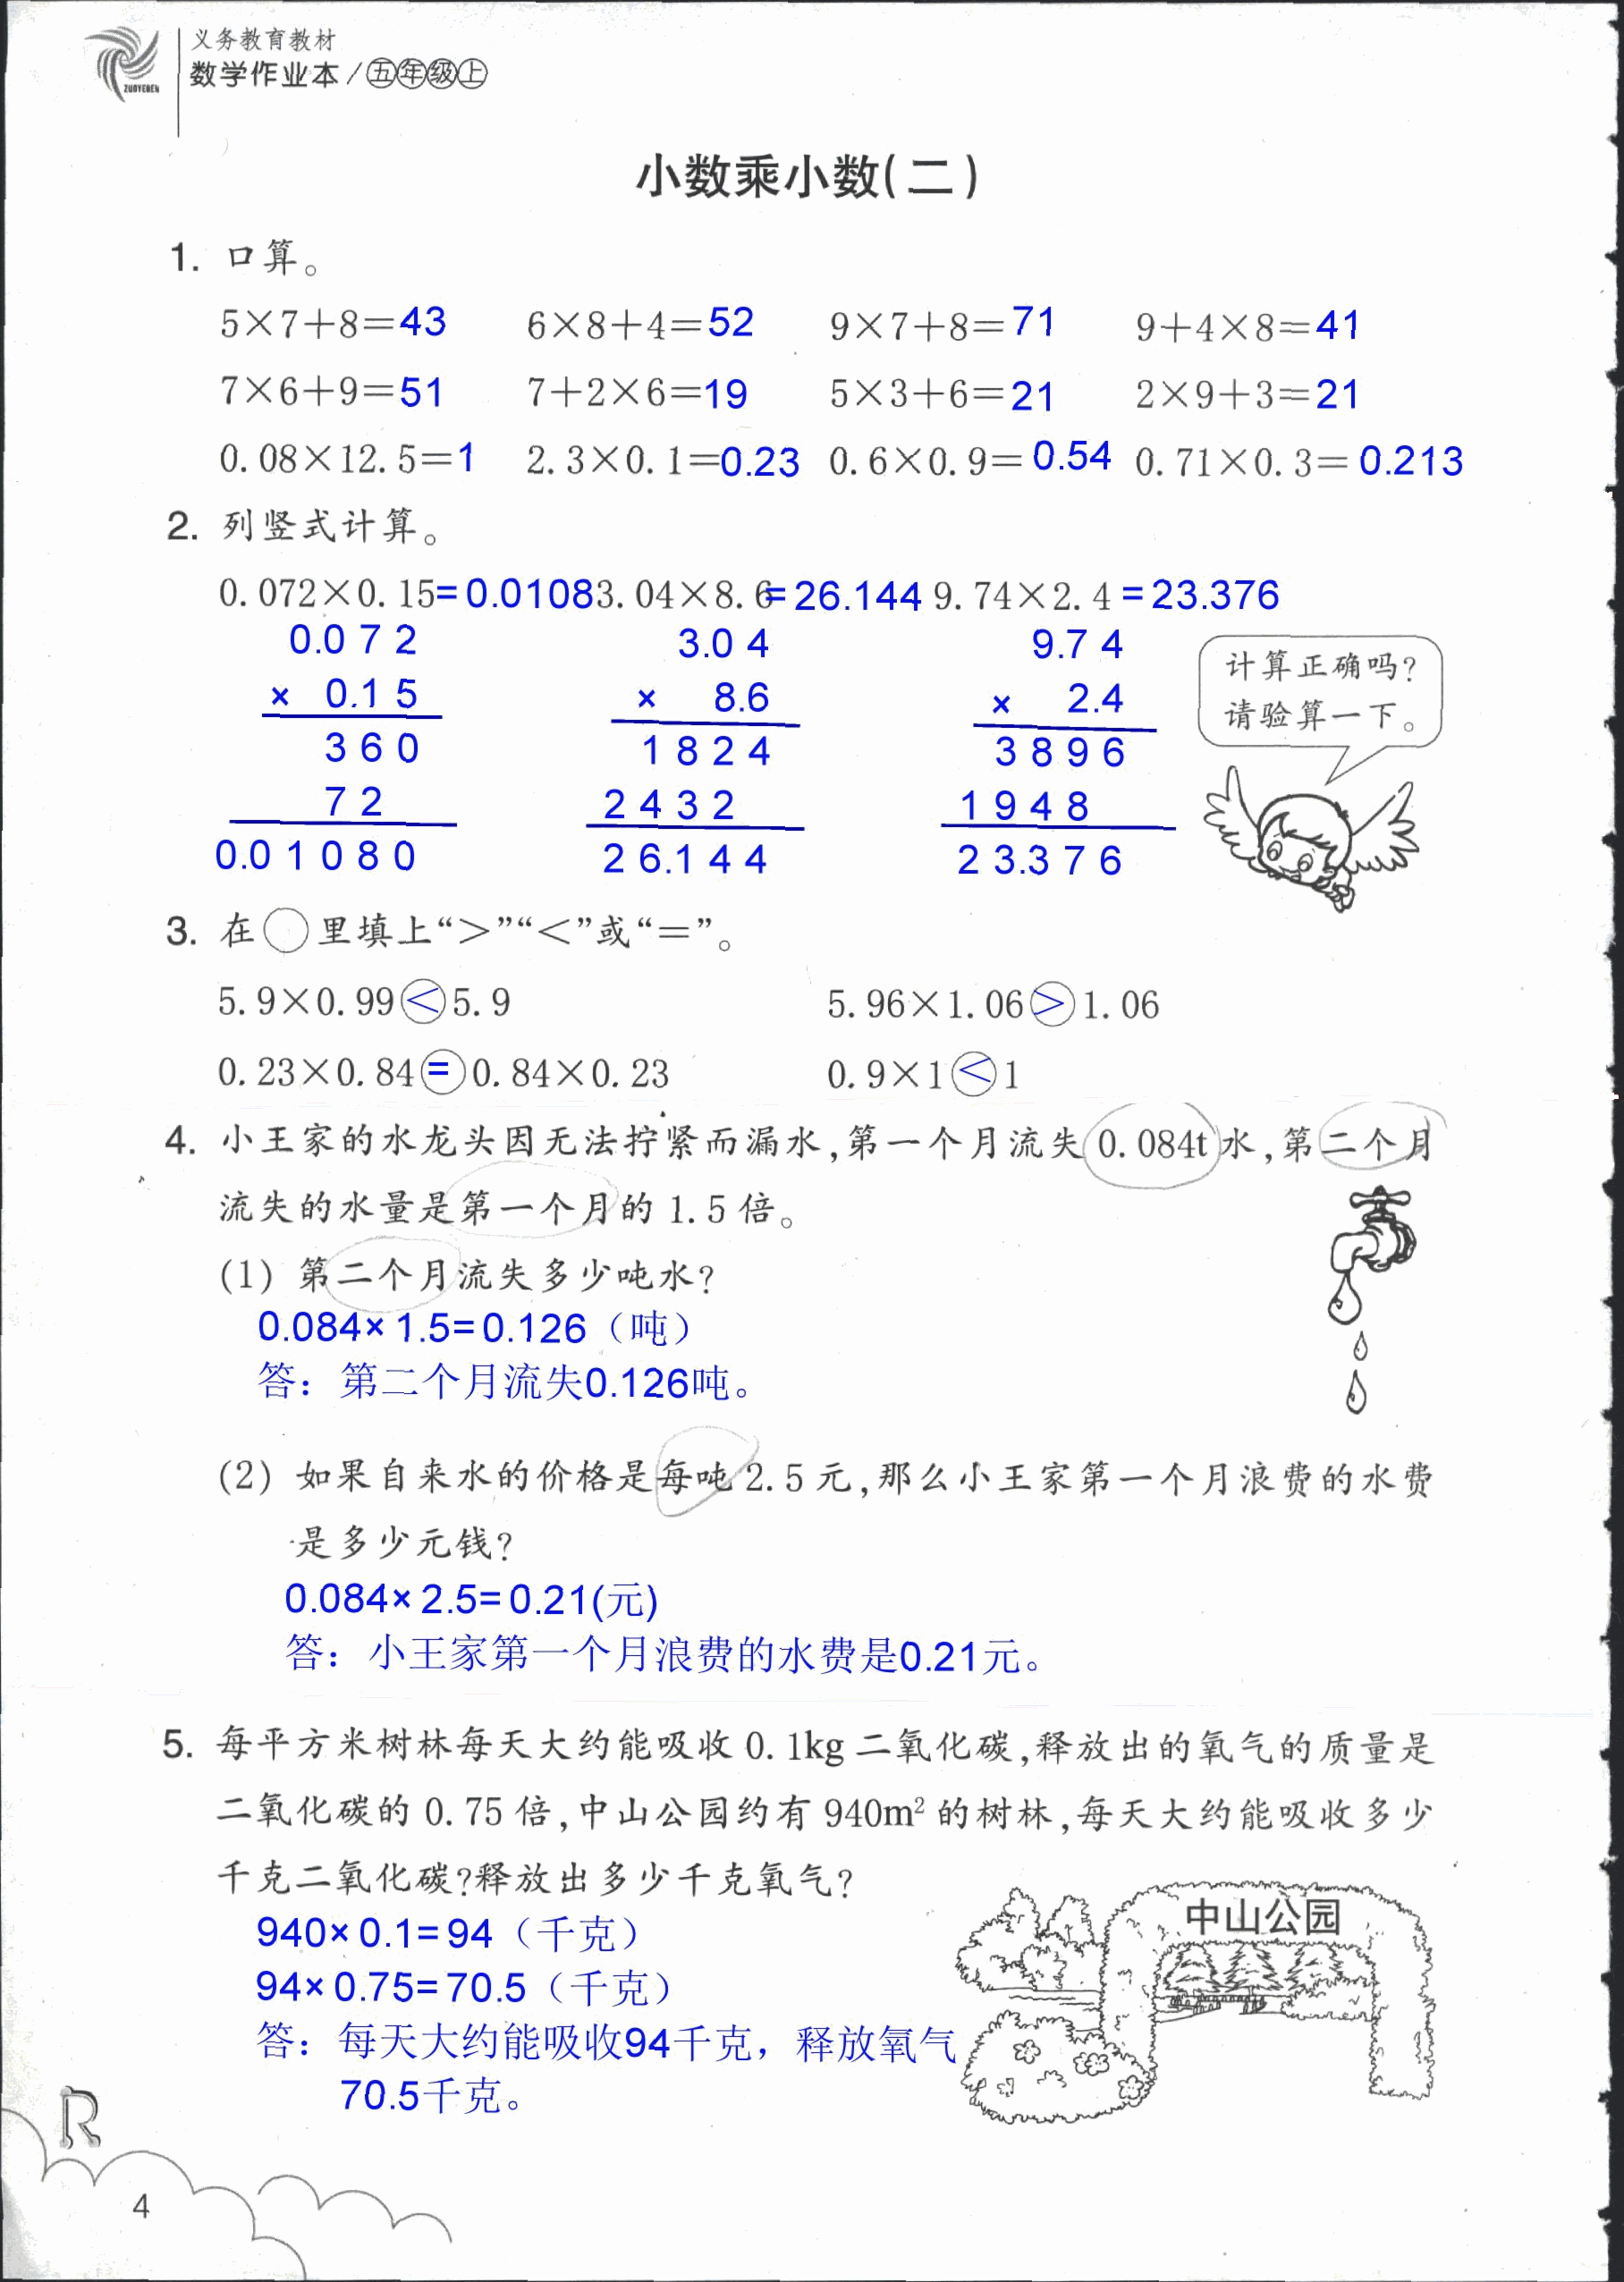 义务教育教材
数学作业本/五年级上
ZUOYEBEN
小数乘小数(二)
1. 口算。
5×7+8=43 6×8+4=52 9×7+8=71 9+4×8=41
7×6+9=51 7+2×6=19 5×3+6=21 2×9+3=21
0.08×12.5=1 2.3×0.1=0.23 0.6×0.9=0.54 0.71×0.3=0.213
2. 列竖式计算。
0.072×0.15=0.0108 3.04×8.6=26.144 9.74×2.4=23.376
0.072 3.04 9.74
× 0.15 × 8.6 × 2.4
360 1824 3896
72 2432 1948
0.01080 26.144 23.376
计算正确吗?
请验算一下。
3. 在○里填上“>”“<”或“=”。
5.9×0.99<5.9 5.96×1.06>1.06
0.23×0.84=0.84×0.23 0.9×1<1
4. 小王家的水龙头因无法拧紧而漏水,第一个月流失0.084t水,第二个月
流失的水量是第一个月的1.5倍。
(1) 第二个月流失多少吨水?
0.084×1.5=0.126（吨）
答：第二个月流失0.126吨。
(2) 如果自来水的价格是每吨2.5元,那么小王家第一个月浪费的水费
是多少元钱?
0.084×2.5=0.21(元)
答：小王家第一个月浪费的水费是0.21元。
5. 每平方米树林每天大约能吸收0.1kg二氧化碳,释放出的氧气的质量是
二氧化碳的0.75倍,中山公园约有940m²的树林,每天大约能吸收多少
千克二氧化碳?释放出多少千克氧气?
940×0.1=94（千克）
94×0.75=70.5（千克）
答：每天大约能吸收94千克，释放氧气
70.5千克。
中山公园
R
4